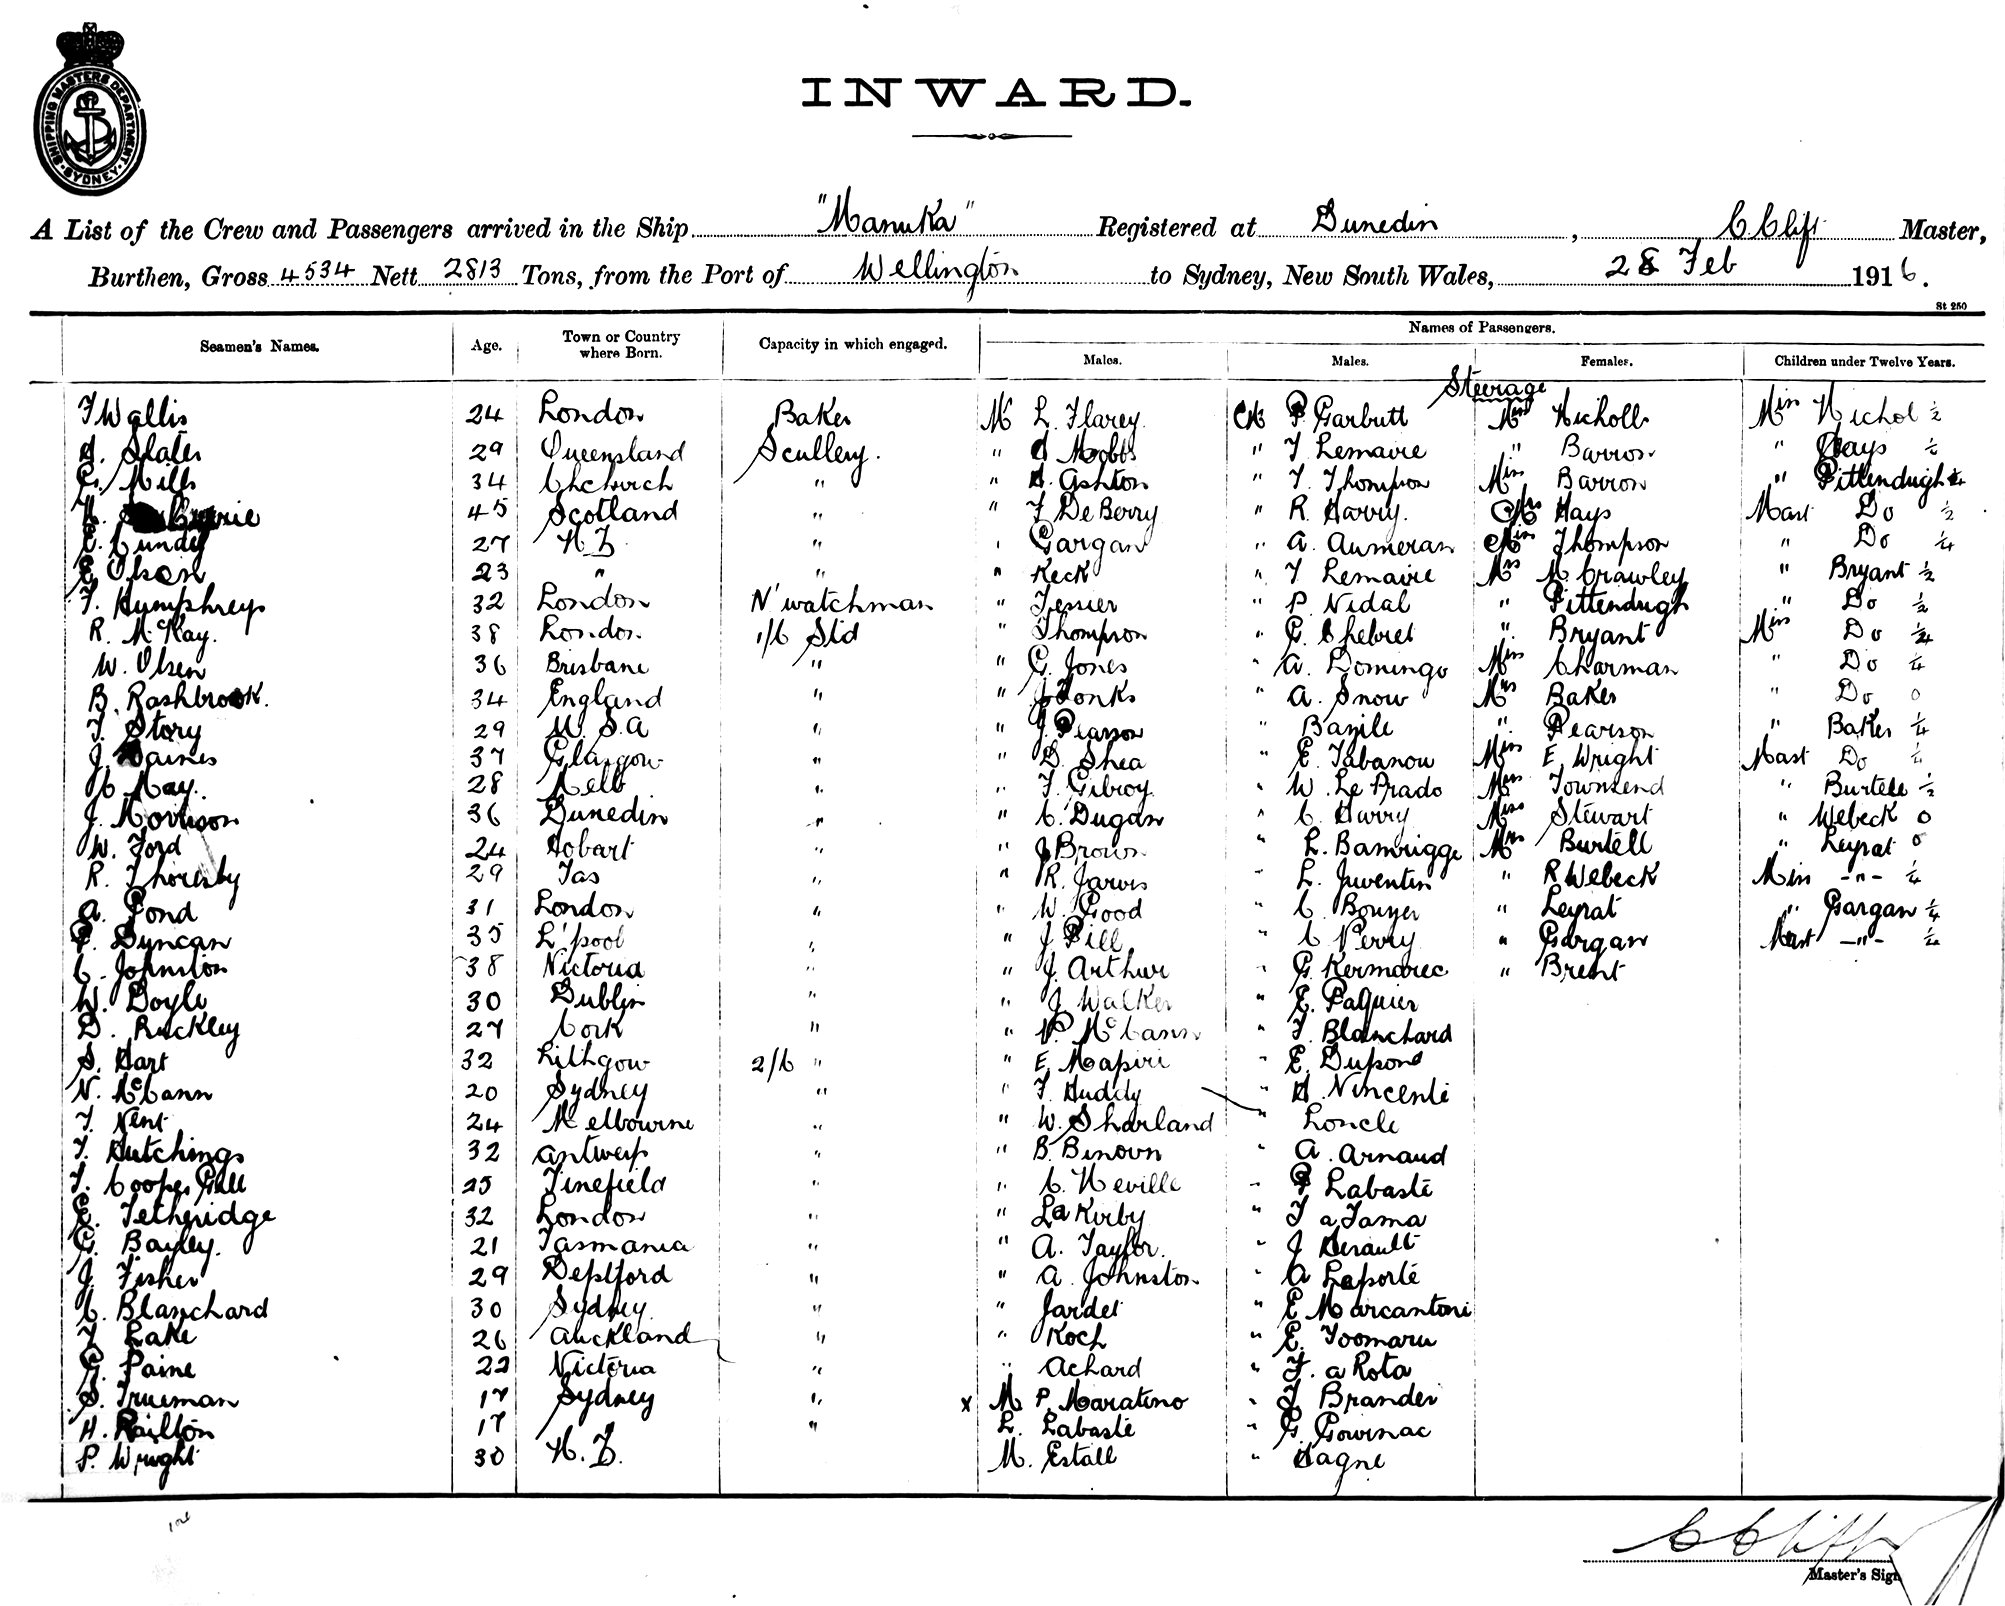 SHIPPING MASTERS DEPARTMENT. SYDNEY
INWARD.
A List of the Crew and Passengers arrived in the Ship "Manuka" Registered at Dunedin, C Clift Master,
Burthen, Gross 4534 Nett 2813 Tons, from the Port of Wellington to Sydney, New South Wales, 28 Feb 1916.
St 250
Names of Passengers.
Seamen's Names. Age. Town or Country where Born. Capacity in which engaged. Males. Males. Females. Children under Twelve Years.
Steerage
F Wallis 24 London Baker Mr L. Flarey Mr P Garbutt Mrs Nicholls Miss Nichol ½
A. Slater 29 Queensland Scullery. " Mobbs " F Lemaire " Barron " Hays ½
G. Mills 34 Chchurch " " A. Ashton " F. Thompson Miss Barron " Pittendrigh
45 Scotland " " F De Berry " R. Harry. Mrs Hays Mast Do ½
E. Cundy 27 N Z " " Gargan " A. Aumeran Miss Thompson " Do ¼
E Olsen 23 " " " Keck " F Lemaire Mrs M Crawley " Bryant ½
F. Humphreys 32 London N' watchman " Tessier " P. Vidal " Pittendrigh " Do ½
R. McKay. 38 London 1/C Std " Thompson " G. Chebret " Bryant Miss Do
W. Olsen 36 Brisbane " " G. Jones " A. Domingo Miss Charman " Do ¼
B. Rashbrook. 34 England " " J Tonks " A. Snow Mrs Baker " Do 0
T. Story 29 U. S. A " " J. Pearson " Bazile " Pearson " Baker ¼
J. Baines 37 Glasgow " " D. Shea " E. Tabanou Miss E. Wright Mast Do
C May. 28 Melb " " F. Gilroy " W. Le Prado Townsend " Burtell ½
J. Morrison 36 Dunedin " " C. Dugan " C. Harry Miss Stewart " Webeck 0
W. Ford 24 Hobart " " J Brown " L. Bamrigge Mrs Burtell " Leyrat 0
R. Thoresby 29 Tas " " R. Jarvis " L. Juventin " R Webeck Miss -"- ¼
A. Pond 31 London " " W. Good " C. Bouyer " Leyrat " Gargan ¼
P. Duncan 35 L'pool " " J. Pill " C Perry " Gargan Mast -"- ¼
C. Johnston 38 Victoria " " J. Arthur " G. Kermarec " Brent
W. Doyle 30 Dublin " " J Walker " E. Paquier
D. Ruckley 27 Cork " " P. McCann " F. Blanchard
S. Hart 32 Lithgow 2/C " " E. Mapiri " E. Dupond
N. McCann 20 Sydney " " F. Huddy " A Vincenti
T. Vent 24 Melbourne " " W. Sharland " Loncle
T. Hutchings 32 Antwerp " " B. Binovn " A. Arnaud
T. Cooper Gall 25 Tinefield " " C. Neville " P Labaste
E. Tetheridge 32 London " " La Kirby " T a Tama
G. Bayley. 21 Tasmania " " A. Taylor. " J Herault
J. Fisher 29 Deptford " " A. Johnston " A Laporte
C. Blanchard 30 Sydney. " " Jardet " E Marcantoni
T Lake 26 Auckland " " Koch " E. Toomaru
G. Paine 22 Victoria " " Achard " T. a Rota
S. Trueman 17 Sydney " x M P. Maratino " T. Brander
H. Railton 17 " L. Labaste " G. Gowinac
P. Wright 30 N. Z. M. Estall " Hagne
C Clift
Master's Sign